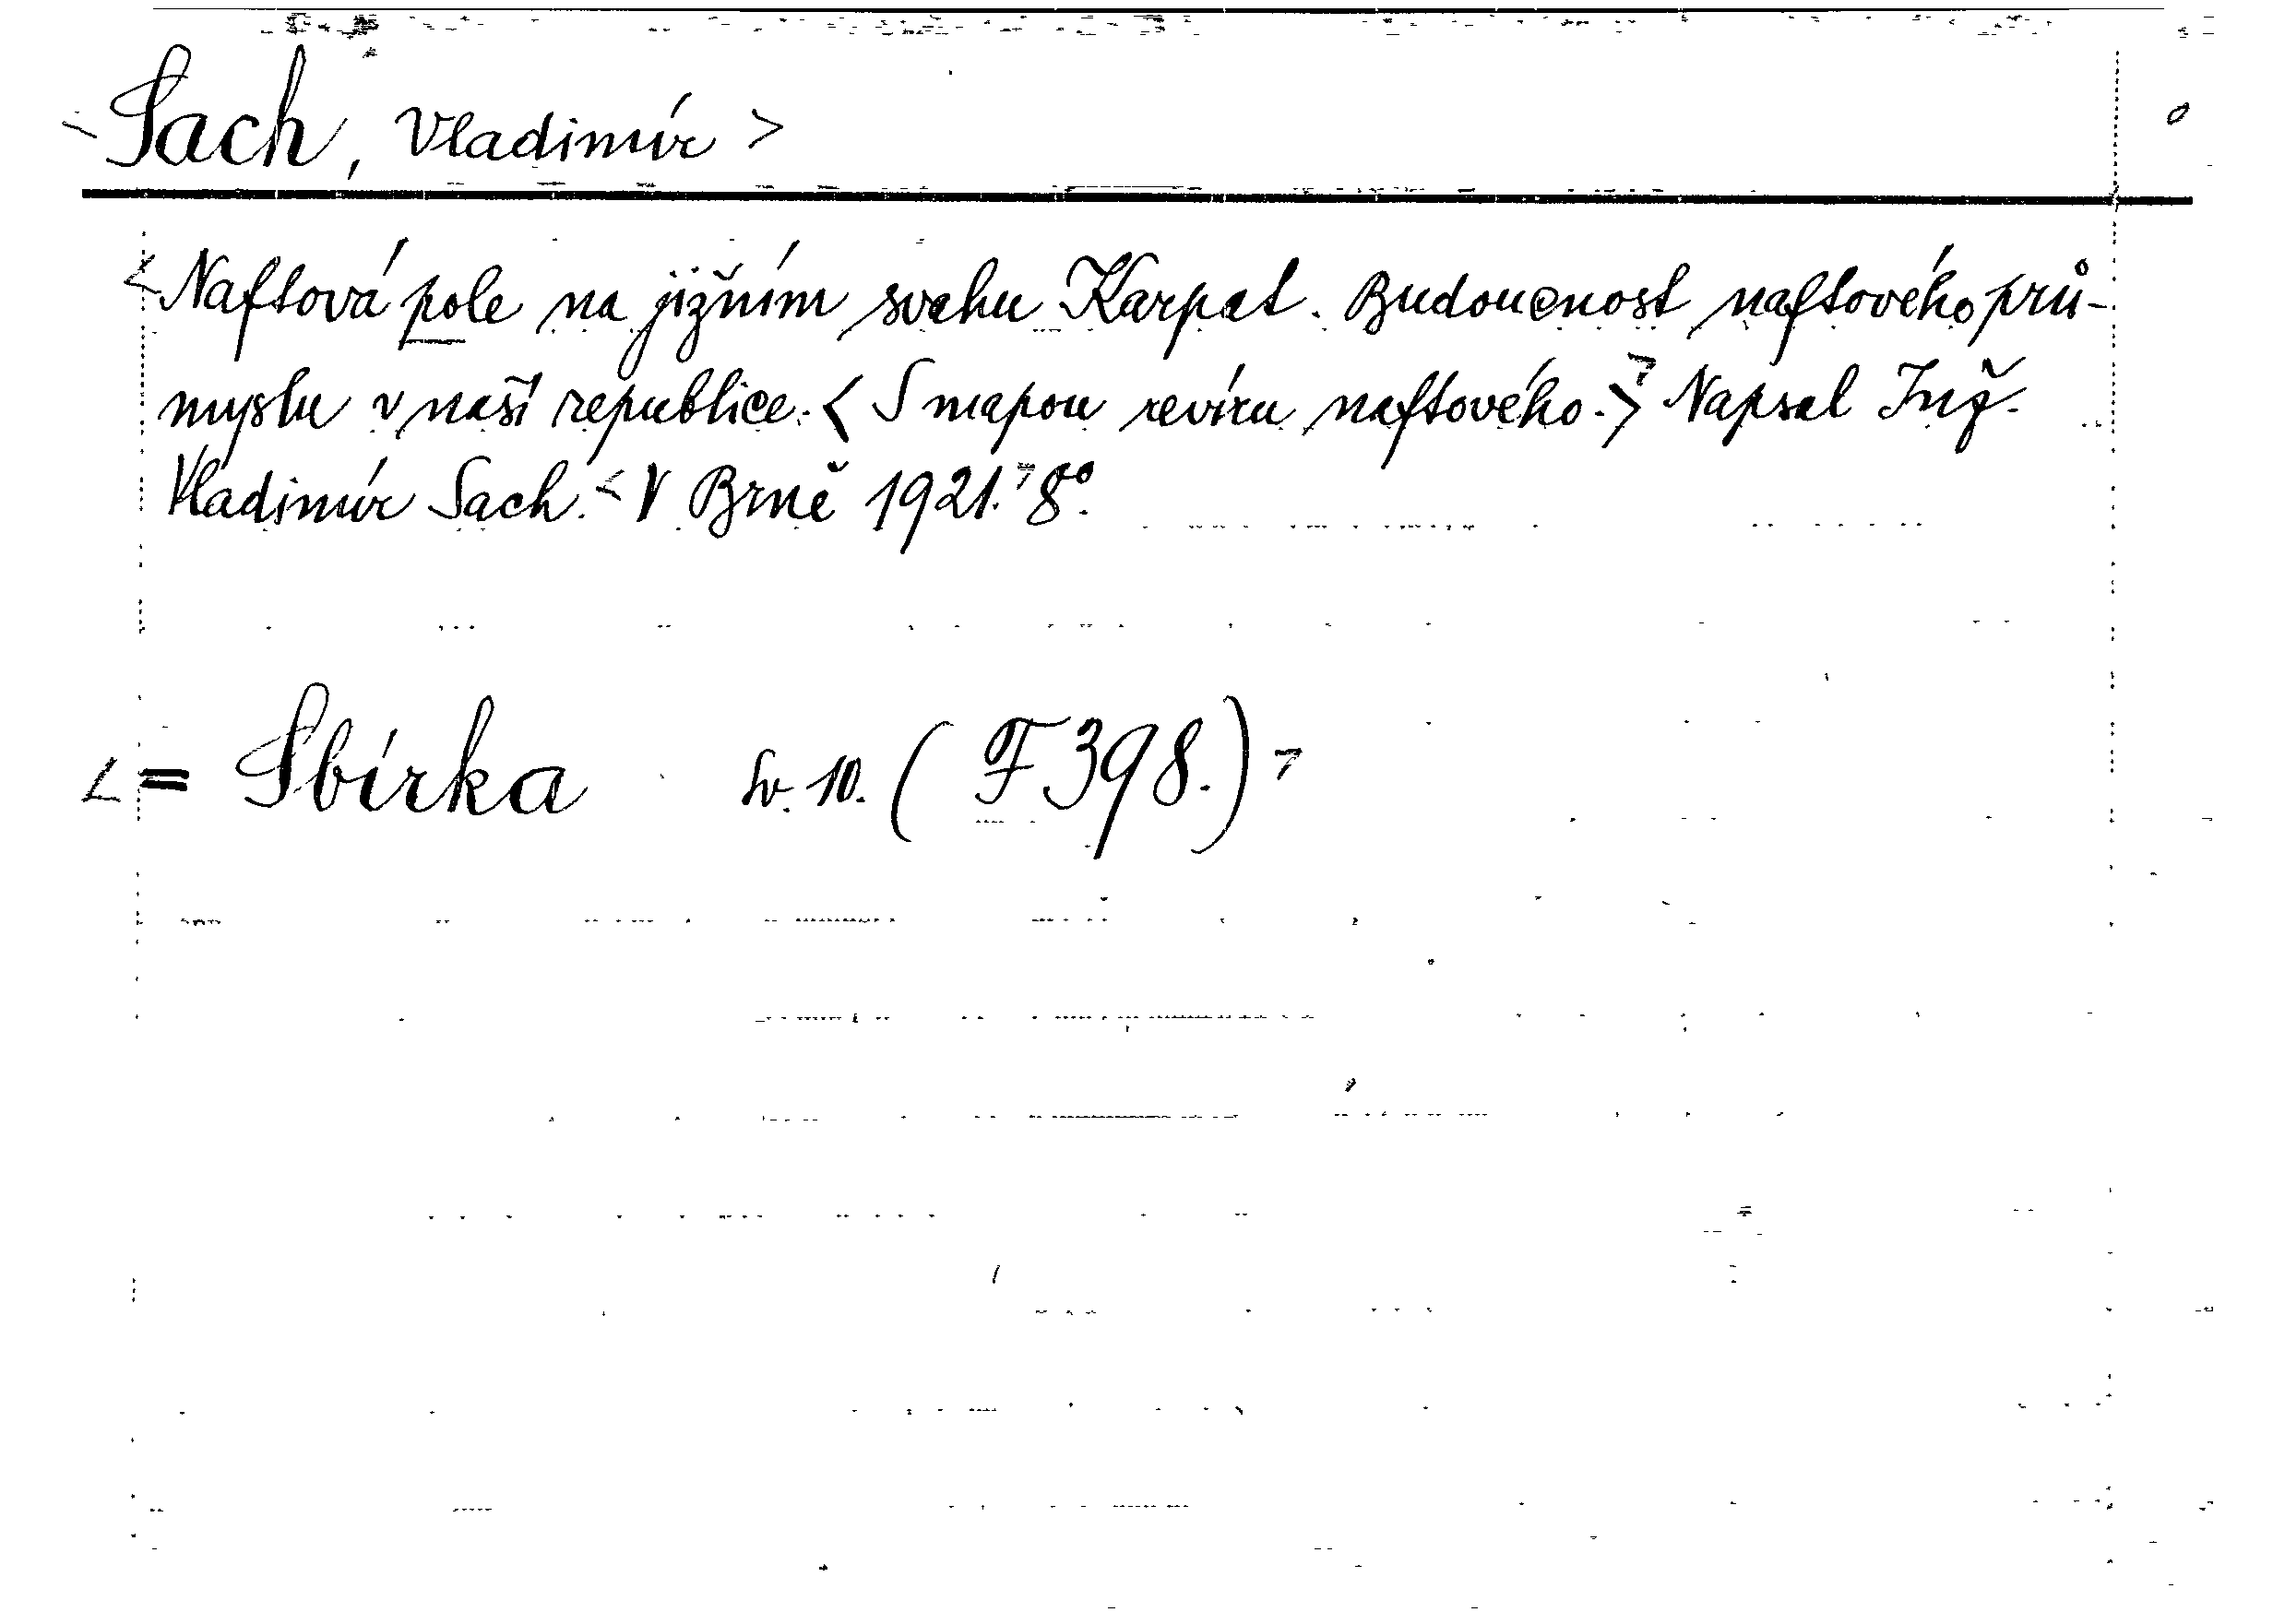 Sach, Vladimír >
<Naftová pole na jižním svahu Karpat. Budoucnost naftového prů-
myslu v naší republice. < S mapou revíru naftového. >> Napsal Inž.
Vladimír Sach. < V Brně 1921.> 8°.
< = Sbírka sv. 10. ( F 398. ) >